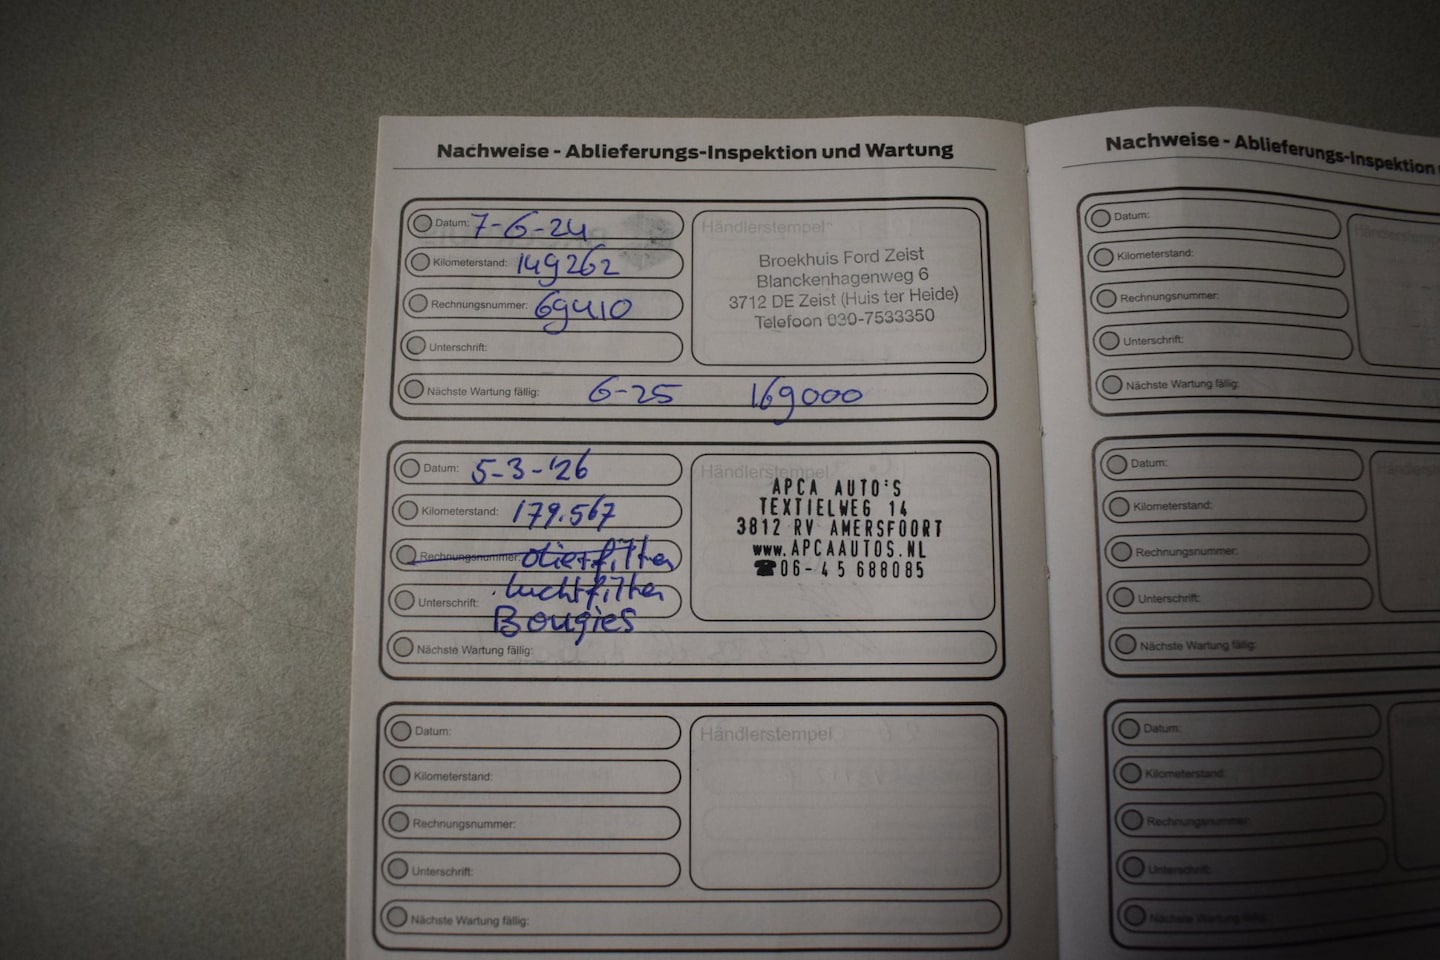 Nachweise - Ablieferungs-Inspektion und Wartung
Datum: 7-6-24
Kilometerstand: 149262
Rechnungsnummer: 69410
Unterschrift:
Händlerstempel
Broekhuis Ford Zeist
Blanckenhagenweg 6
3712 DE Zeist (Huis ter Heide)
Telefoon 030-7533350
Nächste Wartung fällig: 6-25 169000
Datum: 5-3-'26
Kilometerstand: 179.567
Rechnungsnummer: olie+filter
luchtfilter
Unterschrift:
Bougies
Händlerstempel
APCA AUTO'S
TEXTIELWEG 14
3812 RV AMERSFOORT
www.APCAAUTOS.NL
☎06-45688085
Nächste Wartung fällig:
Datum:
Kilometerstand:
Rechnungsnummer:
Unterschrift:
Händlerstempel
Nächste Wartung fällig:
Nachweise - Ablieferungs-Inspektion
Datum:
Kilometerstand:
Rechnungsnummer:
Unterschrift:
Nächste Wartung fällig:
Datum:
Kilometerstand:
Rechnungsnummer:
Unterschrift:
Nächste Wartung fällig:
Datum:
Kilometerstand:
Rechnungsnummer:
Unterschrift:
Nächste Wartung fällig: